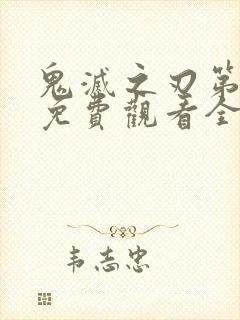 鬼滅之刃第
免費觀看全
韦志忠